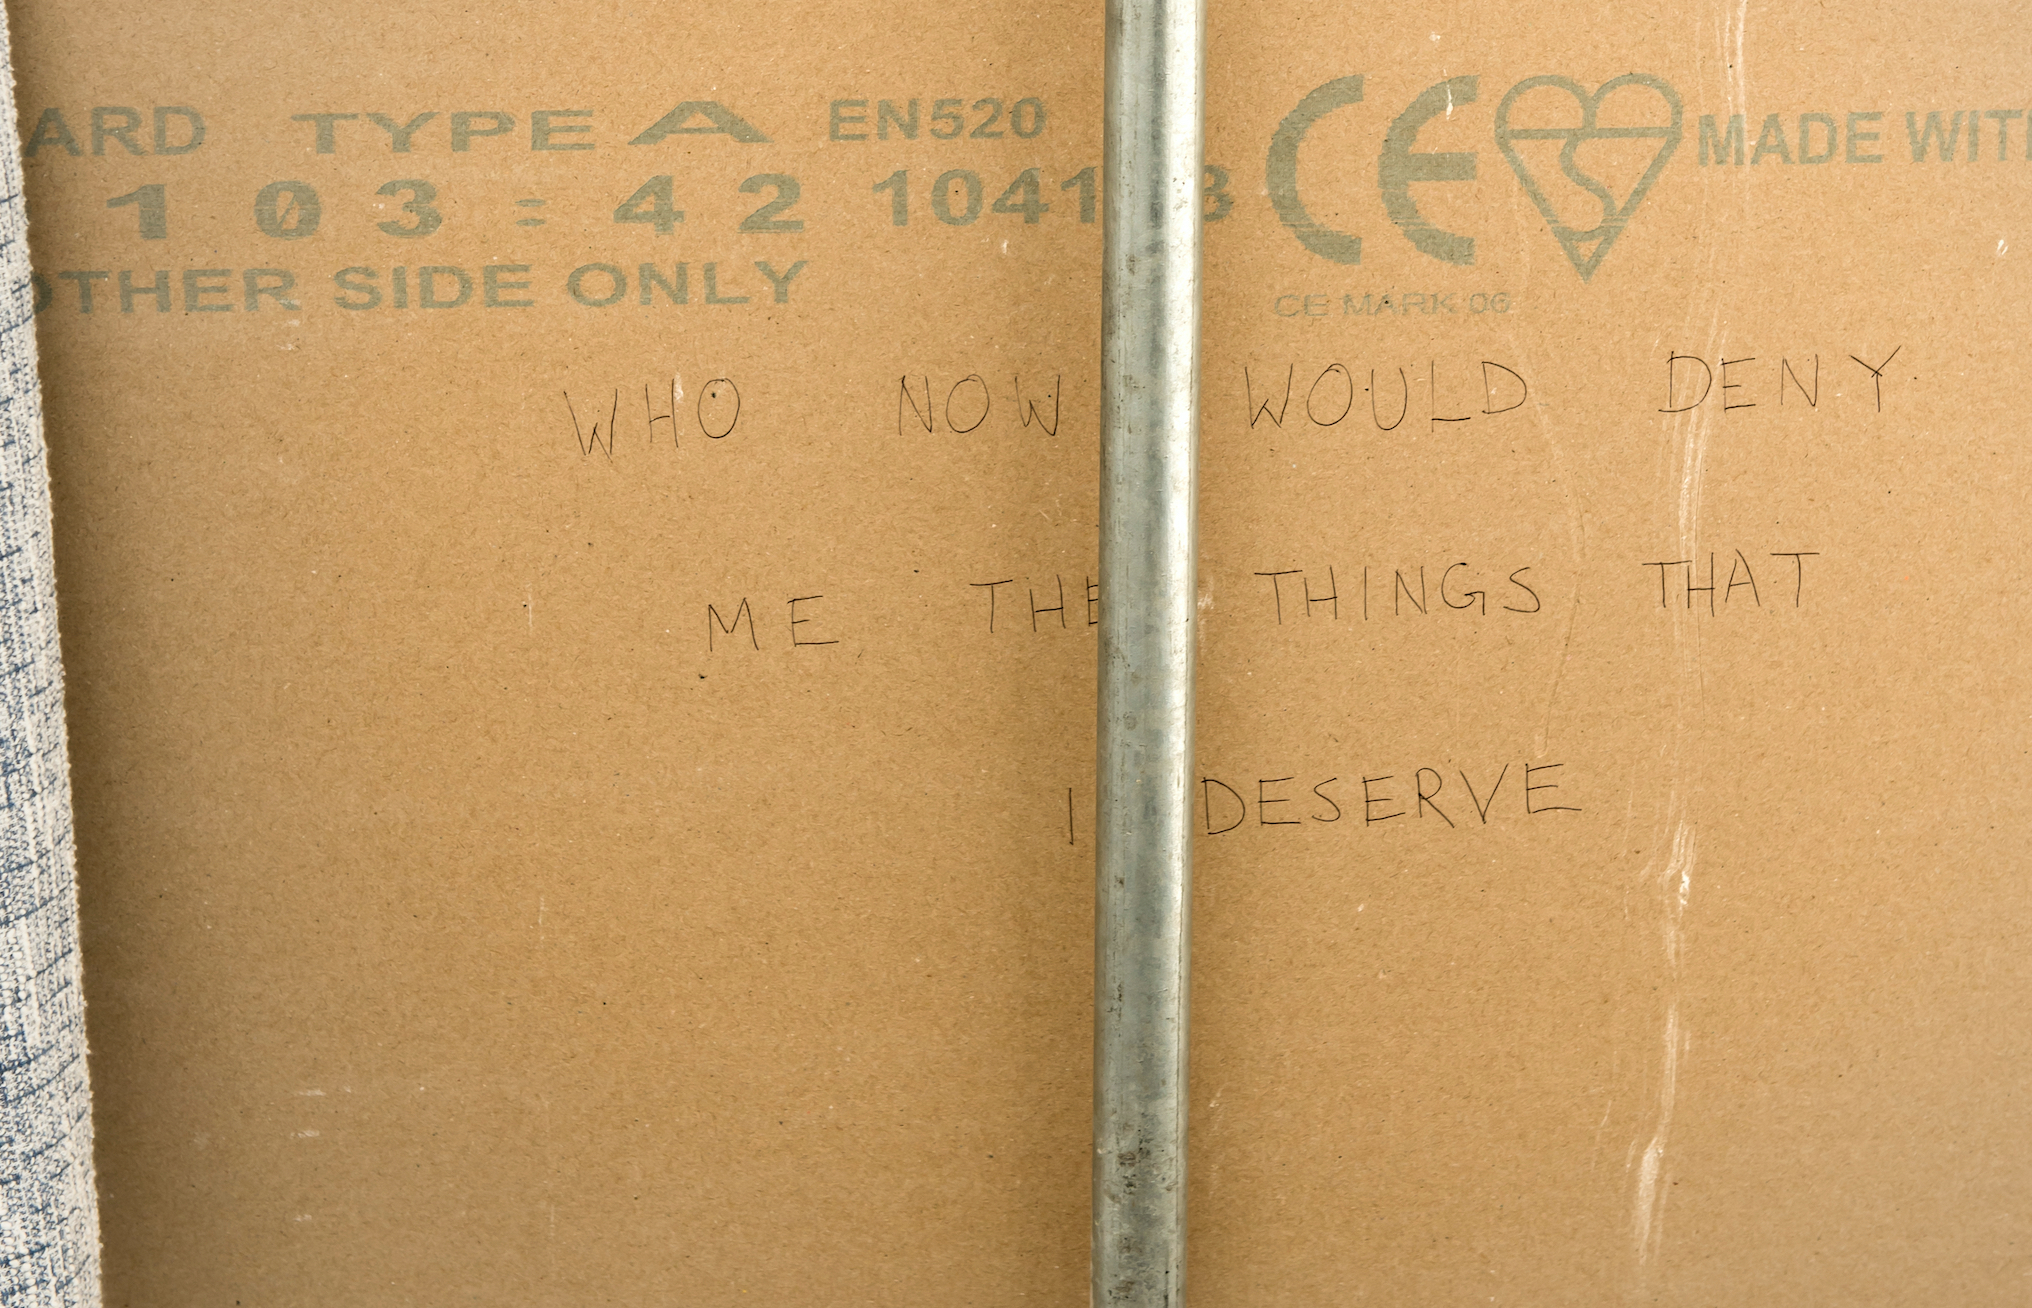 ARD TYPE A EN520
1 03 : 42 1041 3
OTHER SIDE ONLY
CE
MADE WITH
CE MARK 06
WHO NOW WOULD DENY
ME THE THINGS THAT
I DESERVE